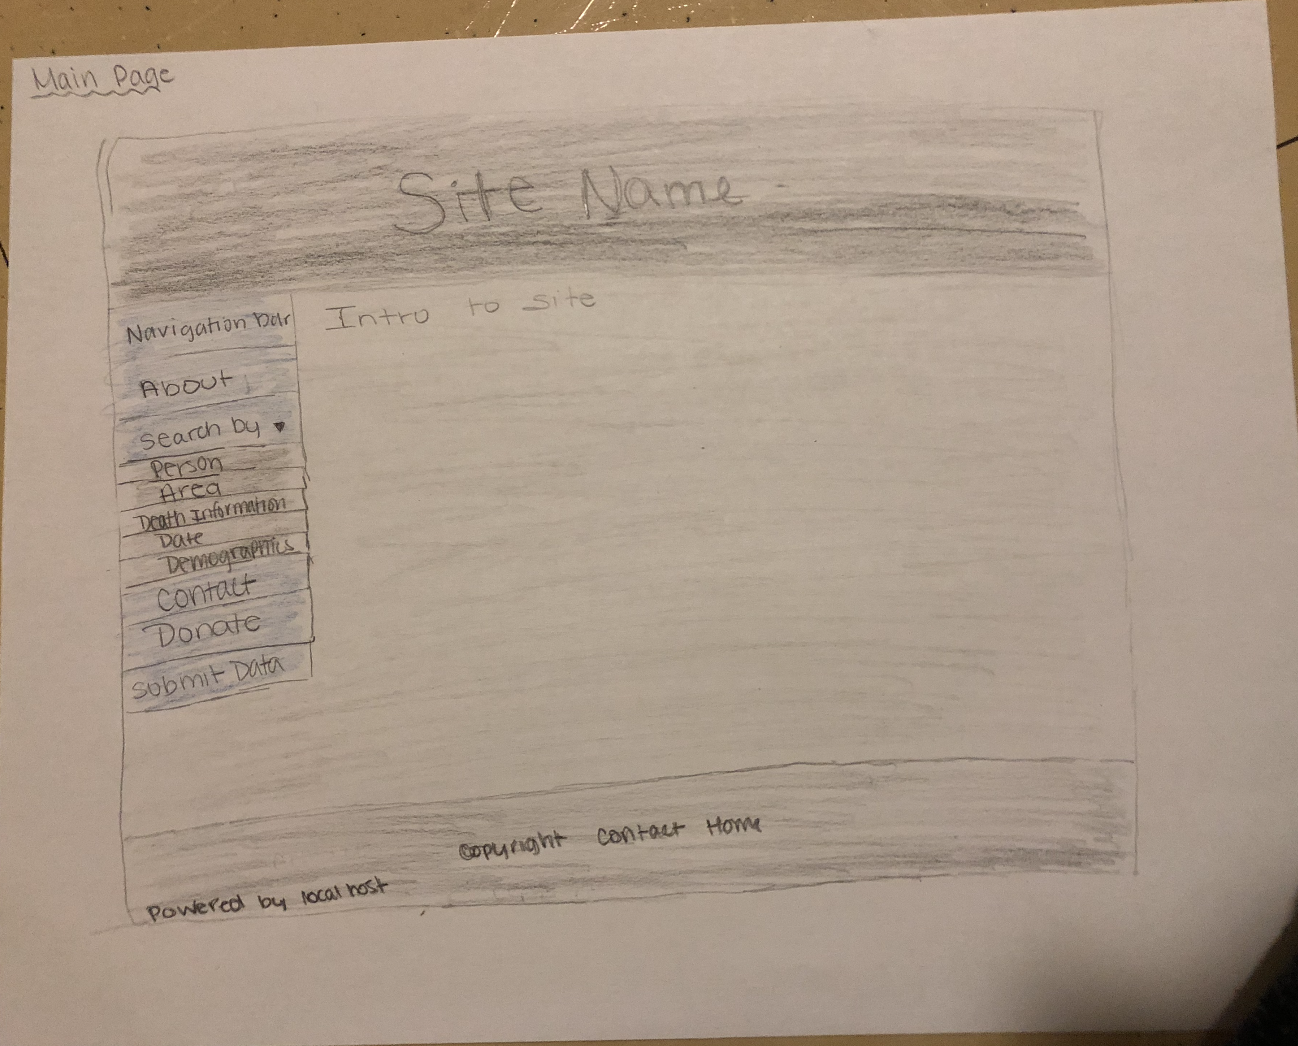 Main Page
Site Name
Navigation bar
Intro to site
About
Search by ▾
Person
Area
Death Information
Date
Demographics
Contact
Donate
Submit Data
Copyright Contact Home
Powered by localhost